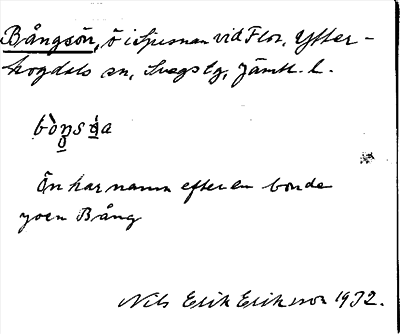 Bångsön, ö i Ljusnan vid Flor, Ytter-
hogdals sn, Svegs tg, Jämtl. l.
Ön har namn efter en bonde
Bång
Nils Erik Eriksson 1932.